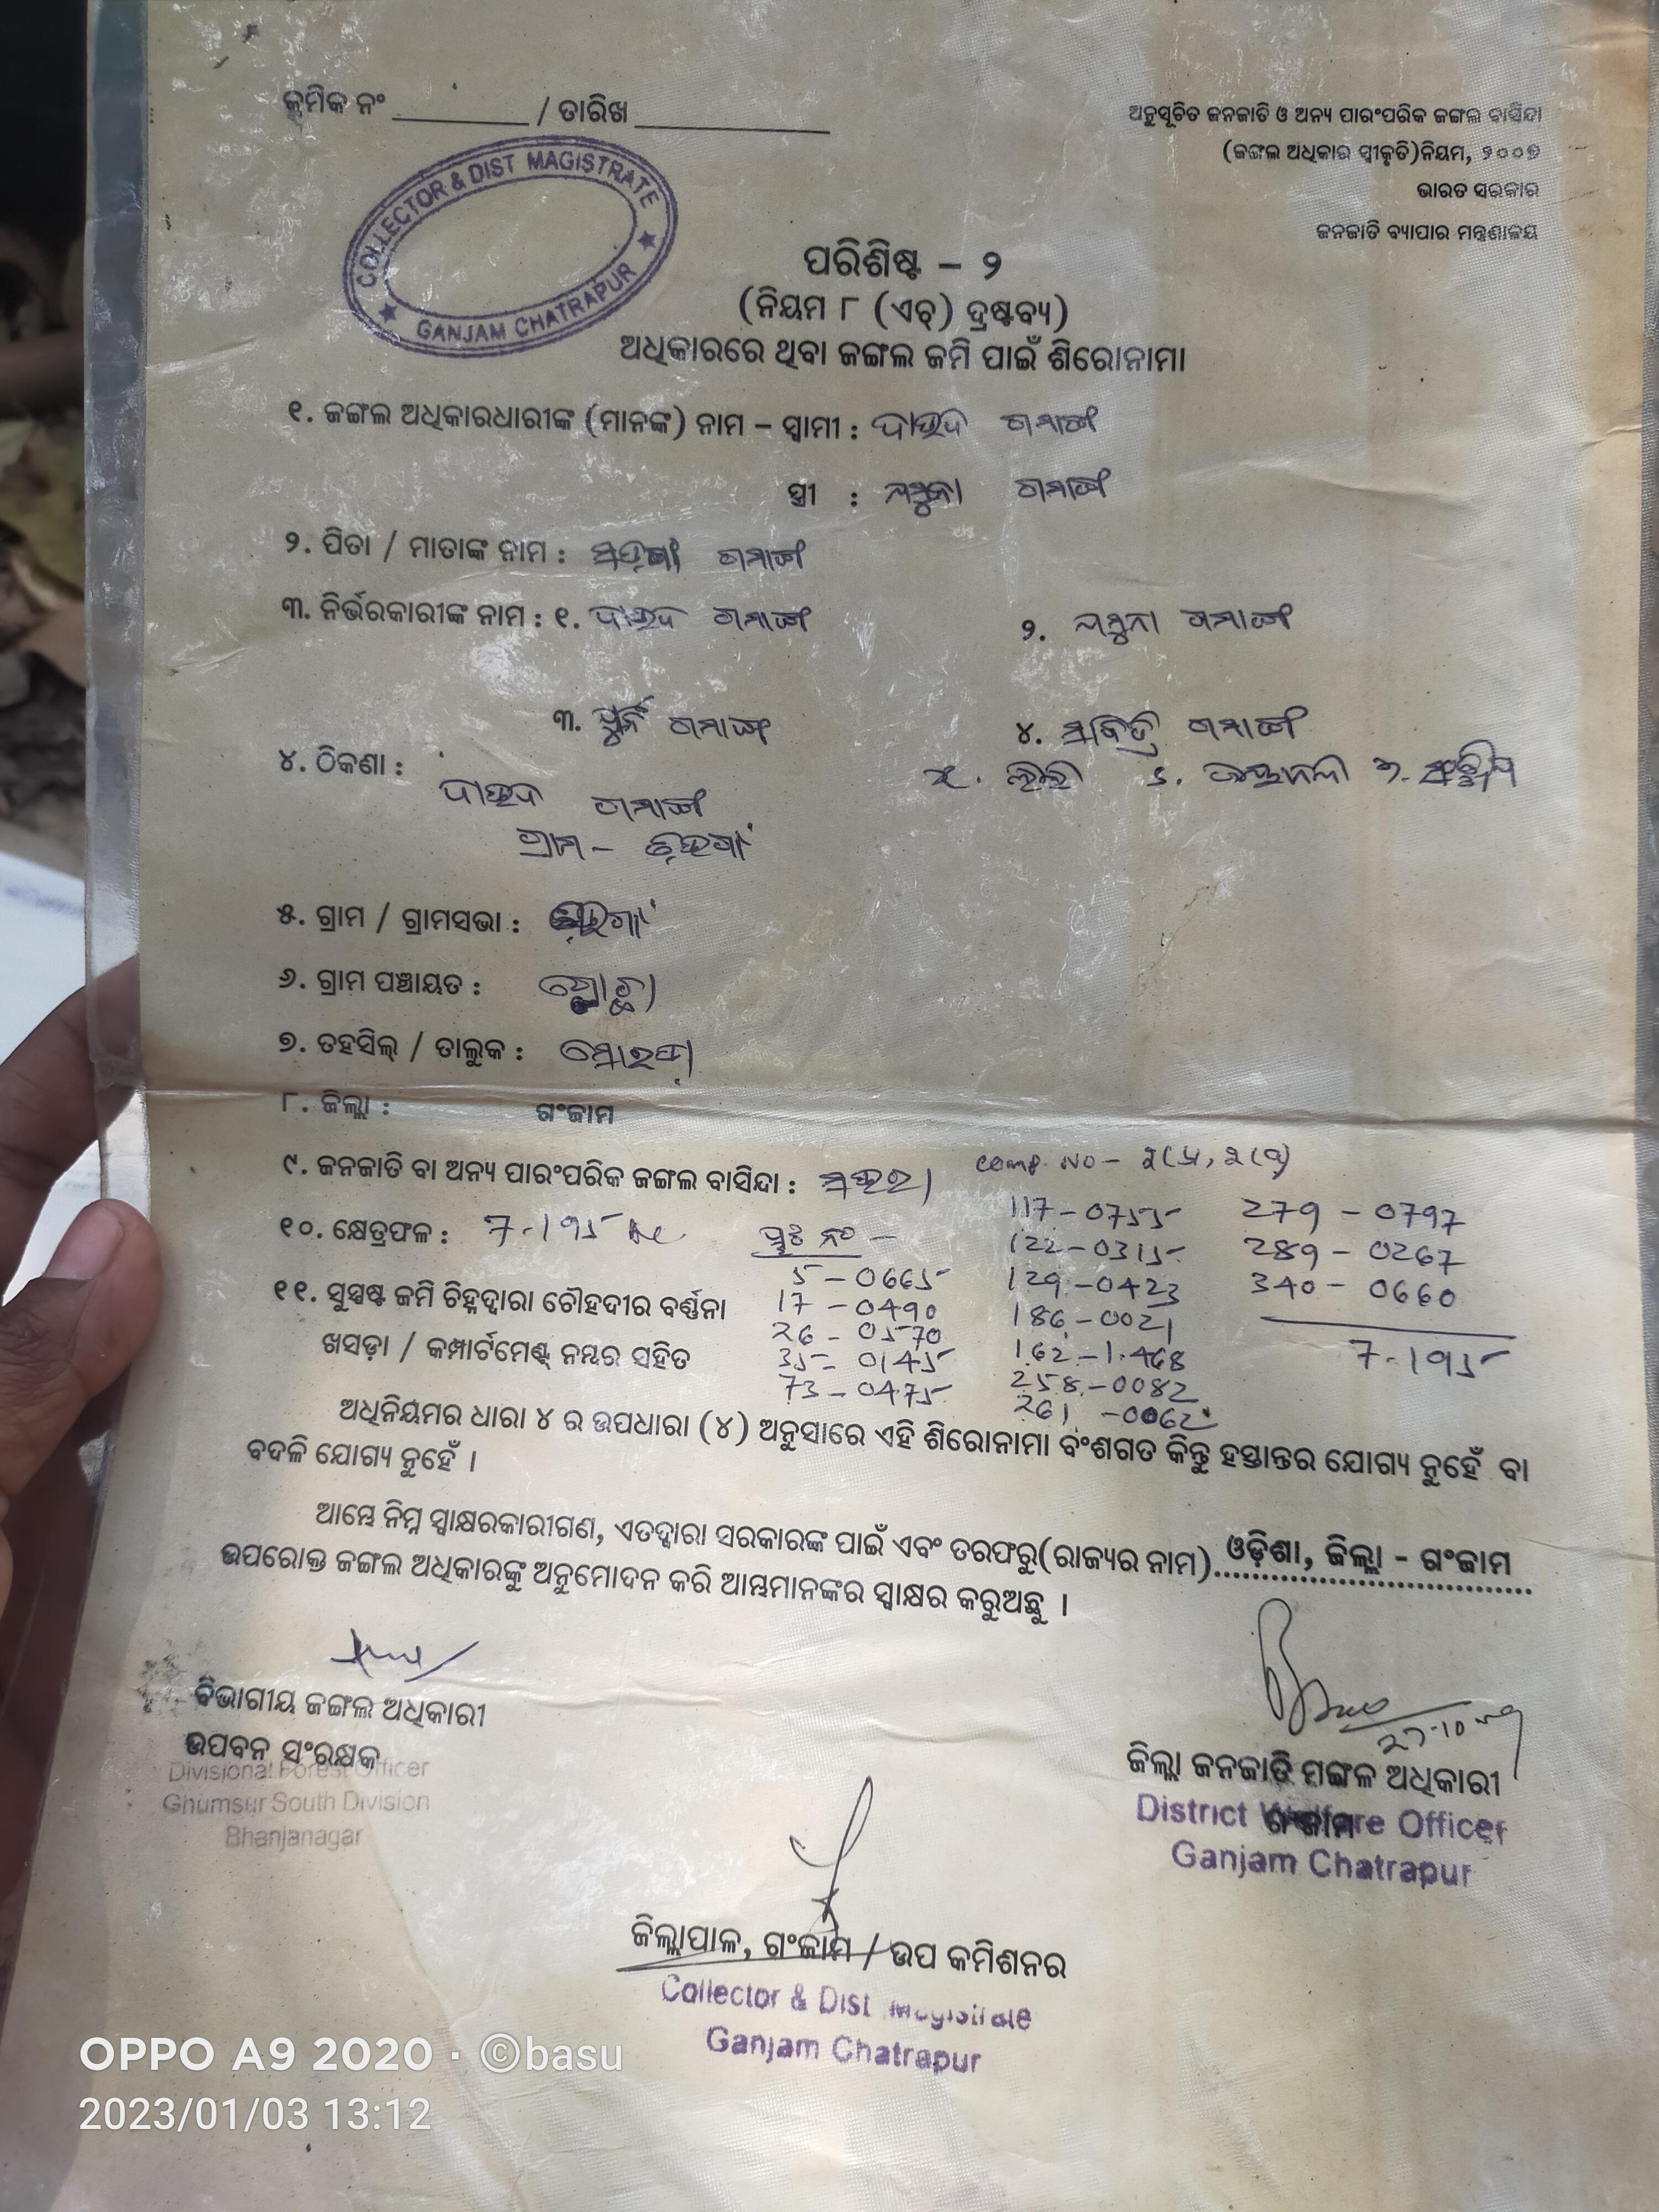 କ୍ରମିକ ନଂ ________ / ତାରିଖ ____________
ଅନୁସୂଚିତ ଜନଜାତି ଓ ଅନ୍ୟ ପାରଂପରିକ ଜଙ୍ଗଲ ବାସିନ୍ଦା
(ଜଙ୍ଗଲ ଅଧିକାର ସ୍ୱୀକୃତି) ନିୟମ, ୨୦୦୭
ଭାରତ ସରକାର
ଜନଜାତି ବ୍ୟାପାର ମନ୍ତ୍ରଣାଳୟ
COLLECTOR & DIST MAGISTRATE
★ GANJAM CHATRAPUR ★
ପରିଶିଷ୍ଟ – ୨
(ନିୟମ ୮ (ଏଚ୍) ଦ୍ରଷ୍ଟବ୍ୟ)
ଅଧିକାରରେ ଥିବା ଜଙ୍ଗଲ ଜମି ପାଇଁ ଶିରୋନାମା
୧. ଜଙ୍ଗଲ ଅଧିକାରଧାରୀଙ୍କ (ମାନଙ୍କ) ନାମ – ସ୍ୱାମୀ : ଦାଉଦ ଗମାଙ୍ଗ
ସ୍ତ୍ରୀ : ଗମାଙ୍ଗ
୨. ପିତା / ମାତାଙ୍କ ନାମ : ଗମାଙ୍ଗ
୩. ନିର୍ଭରକାରୀଙ୍କ ନାମ : ୧. ଦାଉଦ ଗମାଙ୍ଗ ୨. ଗମାଙ୍ଗ
୩. ଗମାଙ୍ଗ ୪. ଗମାଙ୍ଗ
୪. ଠିକଣା :
ଦାଉଦ ଗମାଙ୍ଗ
ଗ୍ରାମ –
୫. ଗ୍ରାମ / ଗ୍ରାମସଭା :
୬. ଗ୍ରାମ ପଞ୍ଚାୟତ :
୭. ତହସିଲ୍ / ତାଲୁକ : ସୋରଡ଼ା
୮. ଜିଲ୍ଲା : ଗଂଜାମ
୯. ଜନଜାତି ବା ଅନ୍ୟ ପାରଂପରିକ ଜଙ୍ଗଲ ବାସିନ୍ଦା : Comp. No –
୧୦. କ୍ଷେତ୍ରଫଳ : 7.195 Ac
୧୧. ସୁସ୍ପଷ୍ଟ ଜମି ଚିହ୍ନଦ୍ୱାରା ଚୌହଦୀର ବର୍ଣ୍ଣନା
ଖସଡ଼ା / କମ୍ପାର୍ଟମେଣ୍ଟ୍ ନମ୍ବର ସହିତ
5 – 0665
17 – 0490
26 – 0570
35 – 0145
73 – 0475
117 – 0755
122 – 0315
129 – 0423
186 – 0021
162 – 1.468
258 – 0082
261 – 0062
279 – 0797
289 – 0267
340 – 0660
7.195
ଅଧିନିୟମର ଧାରା ୪ ର ଉପଧାରା (୪) ଅନୁସାରେ ଏହି ଶିରୋନାମା ବଂଶଗତ କିନ୍ତୁ ହସ୍ତାନ୍ତର ଯୋଗ୍ୟ ନୁହେଁ ବା
ବଦଳି ଯୋଗ୍ୟ ନୁହେଁ ।
ଆମ୍ଭେ ନିମ୍ନ ସ୍ୱାକ୍ଷରକାରୀଗଣ, ଏତଦ୍ୱାରା ସରକାରଙ୍କ ପାଇଁ ଏବଂ ତରଫରୁ (ରାଜ୍ୟର ନାମ) ଓଡ଼ିଶା, ଜିଲ୍ଲା - ଗଂଜାମ
ଉପରୋକ୍ତ ଜଙ୍ଗଲ ଅଧିକାରଙ୍କୁ ଅନୁମୋଦନ କରି ଆମ୍ଭମାନଙ୍କର ସ୍ୱାକ୍ଷର କରୁଅଛୁ ।
ବିଭାଗୀୟ ଜଙ୍ଗଲ ଅଧିକାରୀ
ଉପବନ ସଂରକ୍ଷକ
Divisional Forest Officer
Ghumsur South Division
Bhanjanagar
ଜିଲ୍ଲା ଜନଜାତି ମଙ୍ଗଳ ଅଧିକାରୀ
ଗଂଜାମ
District Welfare Officer
Ganjam Chatrapur
ଜିଲ୍ଲାପାଳ, ଗଂଜାମ / ଉପ କମିଶନର
Collector & Dist Magistrate
Ganjam Chatrapur
OPPO A9 2020 · ©basu
2023/01/03 13:12